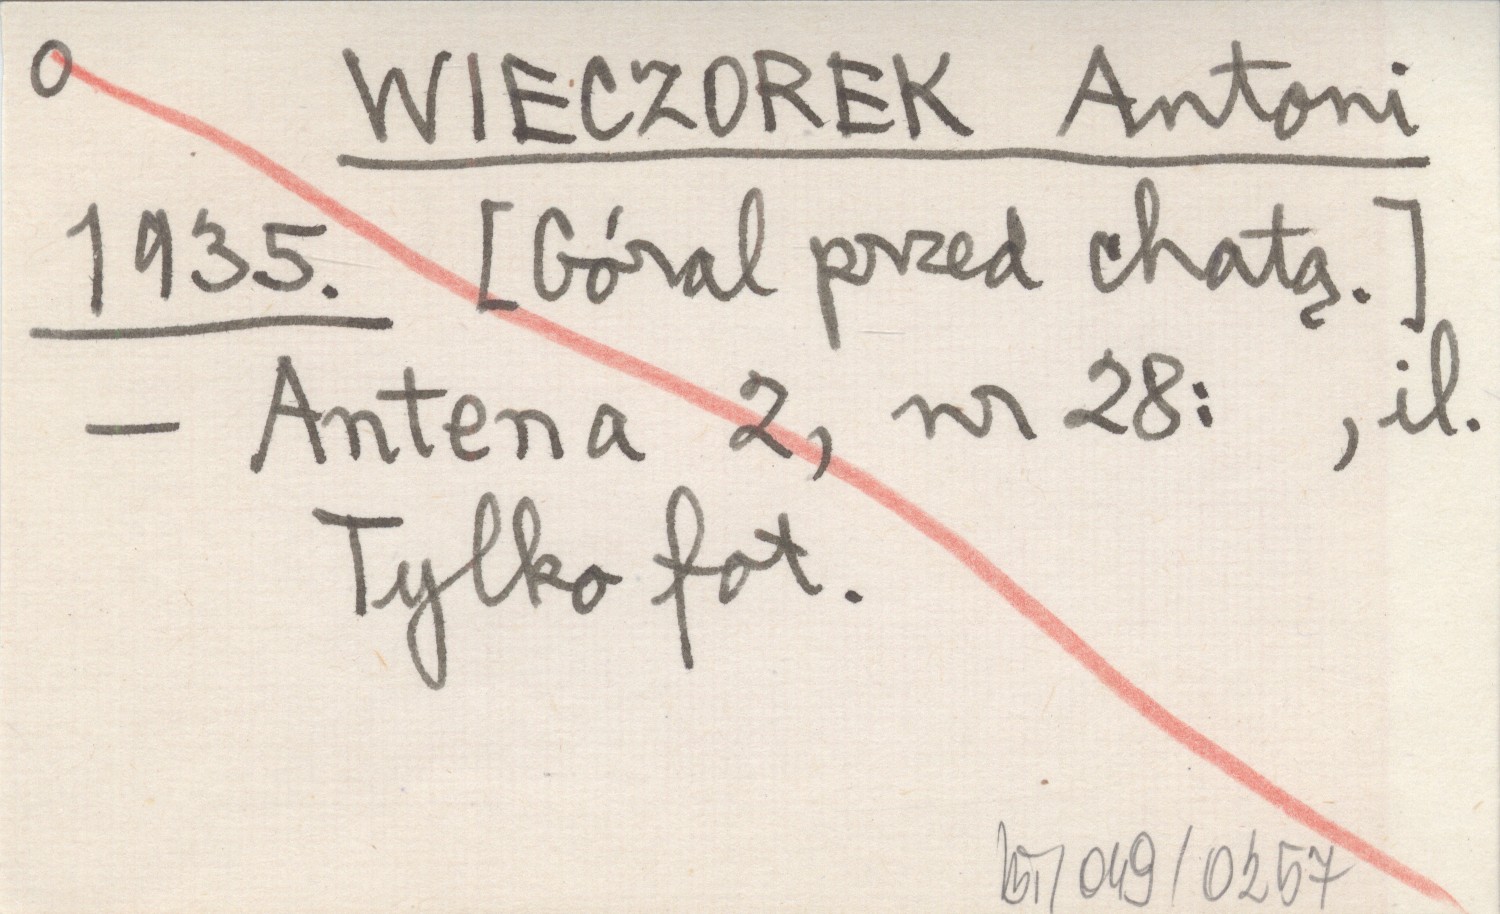 O WIECZOREK Antoni
1935. [Góral przed chatą.]
— Antena 2, nr 28: , il.
Tylko fot.
049/0257